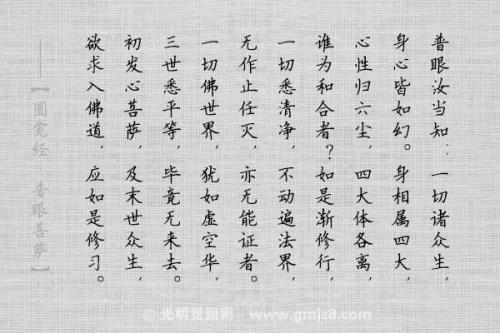 普眼汝当知:一切诸众生,
身心皆如幻。身相属四大,
心性归六尘,四大体各离,
谁为和合者?如是渐修行,
一切悉清净,不动遍法界,
无作止任灭,亦无能证者。
一切佛世界,犹如虚空华,
三世悉平等,毕竟无来去。
初发心菩萨,及末世众生,
欲求入佛道,应如是修习。
——【圓觉经 普眼菩萨】
© 光明 www.gmjz8.com